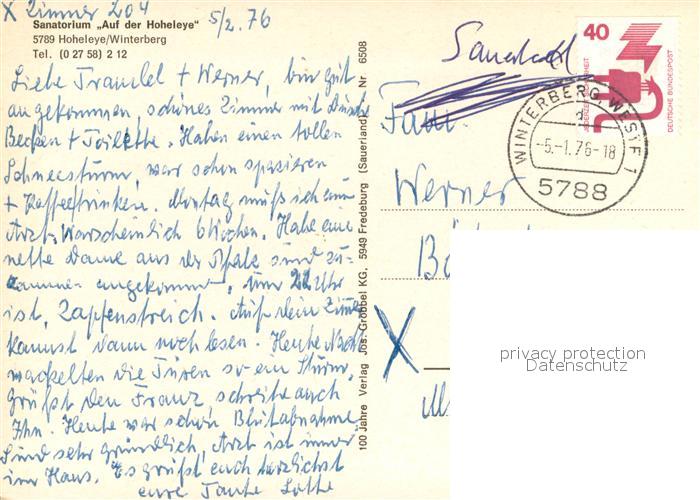 X Zimmer 204 5/2. 76
Sanatorium „Auf der Hoheleye"
5789 Hoheleye/Winterberg
Tel. (0 27 58) 2 12
Liebe Traudel + Werner, bin gut
angekommen, schönes Zimmer mit Dusche
Becken + Toilette. Haben einen tollen
Schneesturm, war schon spazieren
+ Kaffeetrinken. Montag muß ich zum
Arzt. Warscheinlich 6 Wochen. Habe eine
nette Dame aus der Pfalz sind zu-
sammen angekommen, um 22 Uhr
ist Zapfenstreich. Auf dem Zimmer
kannst dann noch lesen. Heute Nacht
wackelten die Türen so ein Sturm.
Grüßt den Franz schreibe auch
Ihn. Heute war schon Blutabnahme.
Sind sehr gründlich, Arzt ist immer
im Haus. Es grüßt euch herzlichst
eure Tante Lotte
100 Jahre Verlag Jos. Grobbel KG, 5949 Fredeburg (Sauerland) Nr 6508
Sauerland
Fam.
Werner
X
40
JUGENDSICHERHEIT
DEUTSCHE BUNDESPOST
WINTERBERG, WESTF 1
-5.-1.76-18
5788
privacy protection
Datenschutz